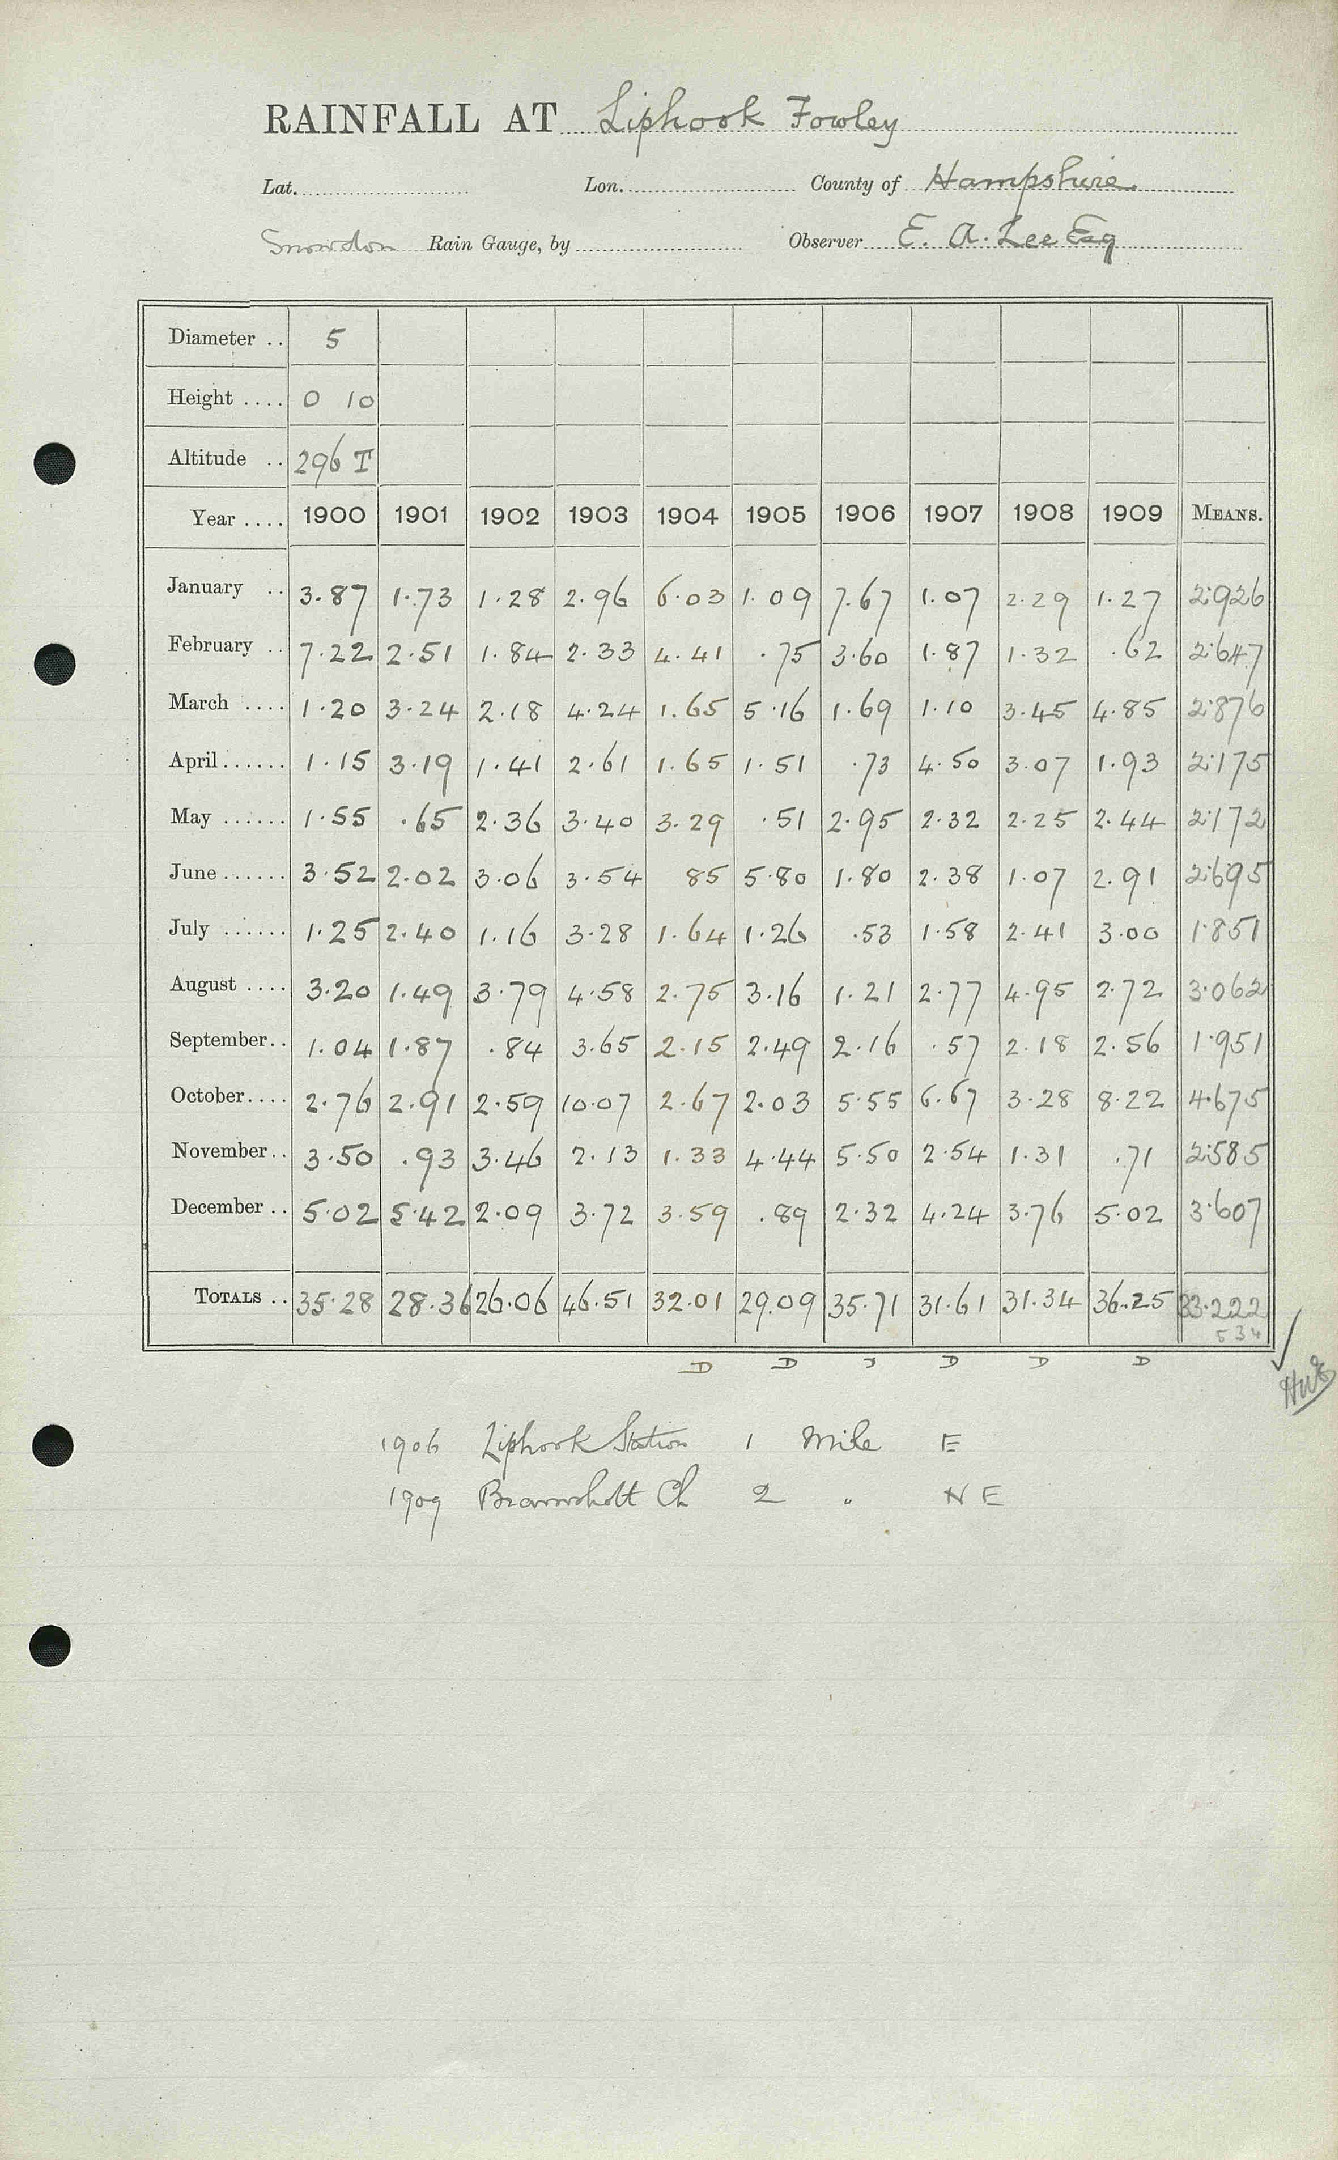 RAINFALL AT Liphook Fowley
Lat. Lon. County of Hampshire
Snowdon Rain Gauge, by Observer E. A. Lee Esq
Diameter .. 5
Height .... 0 10
Altitude .. 296 T
Year .... 1900 1901 1902 1903 1904 1905 1906 1907 1908 1909 MEANS.
January .. 3.87 1.73 1.28 2.96 6.03 1.09 7.67 1.07 2.29 1.27 2.926
February .. 7.22 2.51 1.84 2.33 4.41 .75 3.60 1.87 1.32 .62 2.647
March .... 1.20 3.24 2.18 4.24 1.65 5.16 1.69 1.10 3.45 4.85 2.876
April ...... 1.15 3.19 1.41 2.61 1.65 1.51 .73 4.50 3.07 1.93 2.175
May ...... 1.55 .65 2.36 3.40 3.29 .51 2.95 2.32 2.25 2.44 2.172
June ...... 3.52 2.02 3.06 3.54 85 5.80 1.80 2.38 1.07 2.91 2.695
July ...... 1.25 2.40 1.16 3.28 1.64 1.26 .53 1.58 2.41 3.00 1.851
August .... 3.20 1.49 3.79 4.58 2.75 3.16 1.21 2.77 4.95 2.72 3.062
September.. 1.04 1.87 .84 3.65 2.15 2.49 2.16 .57 2.18 2.56 1.951
October.... 2.76 2.91 2.59 10.07 2.67 2.03 5.55 6.67 3.28 8.22 4.675
November.. 3.50 .93 3.46 2.13 1.33 4.44 5.50 2.54 1.31 .71 2.585
December .. 5.02 5.42 2.09 3.72 3.59 .89 2.32 4.24 3.76 5.02 3.607
TOTALS .. 35.28 28.36 26.06 46.51 32.01 29.09 35.71 31.61 31.34 36.25 33.222
534
D D D D D D
1906 Liphook Station 1 Mile E
1909 Bramshott Ch 2 " N E